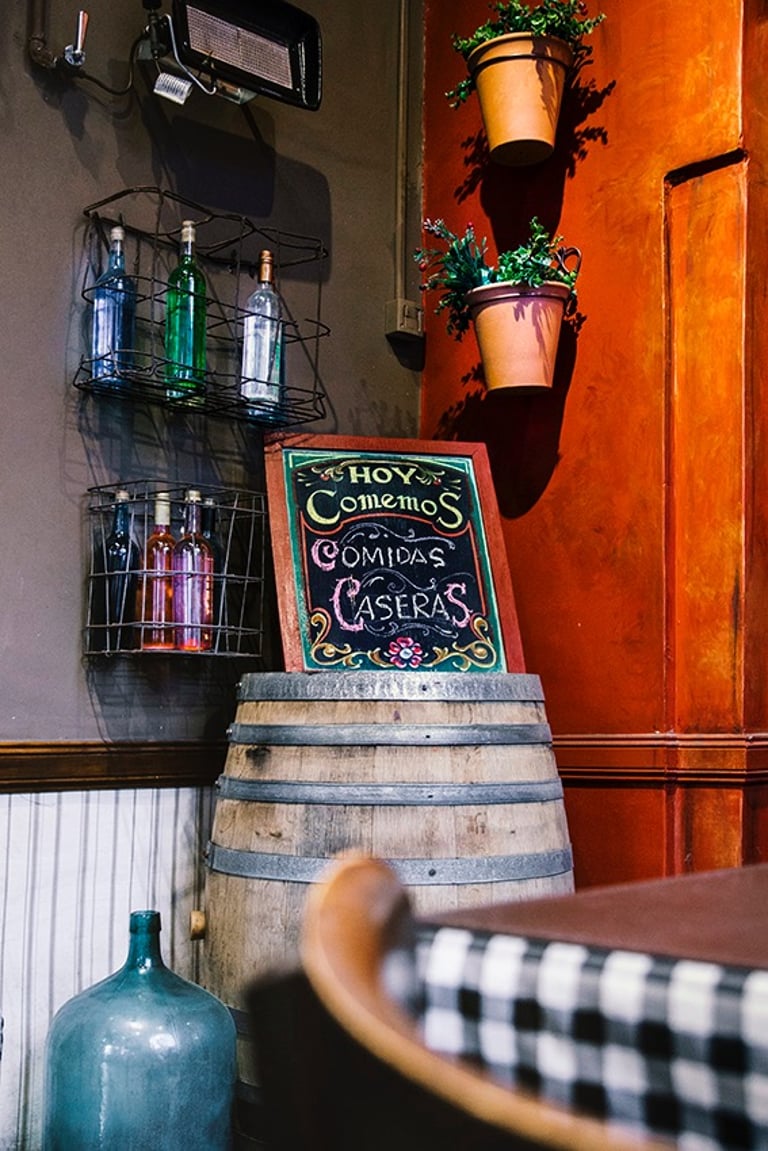 HOY
ComemoS
COMIDAS
CASERAS